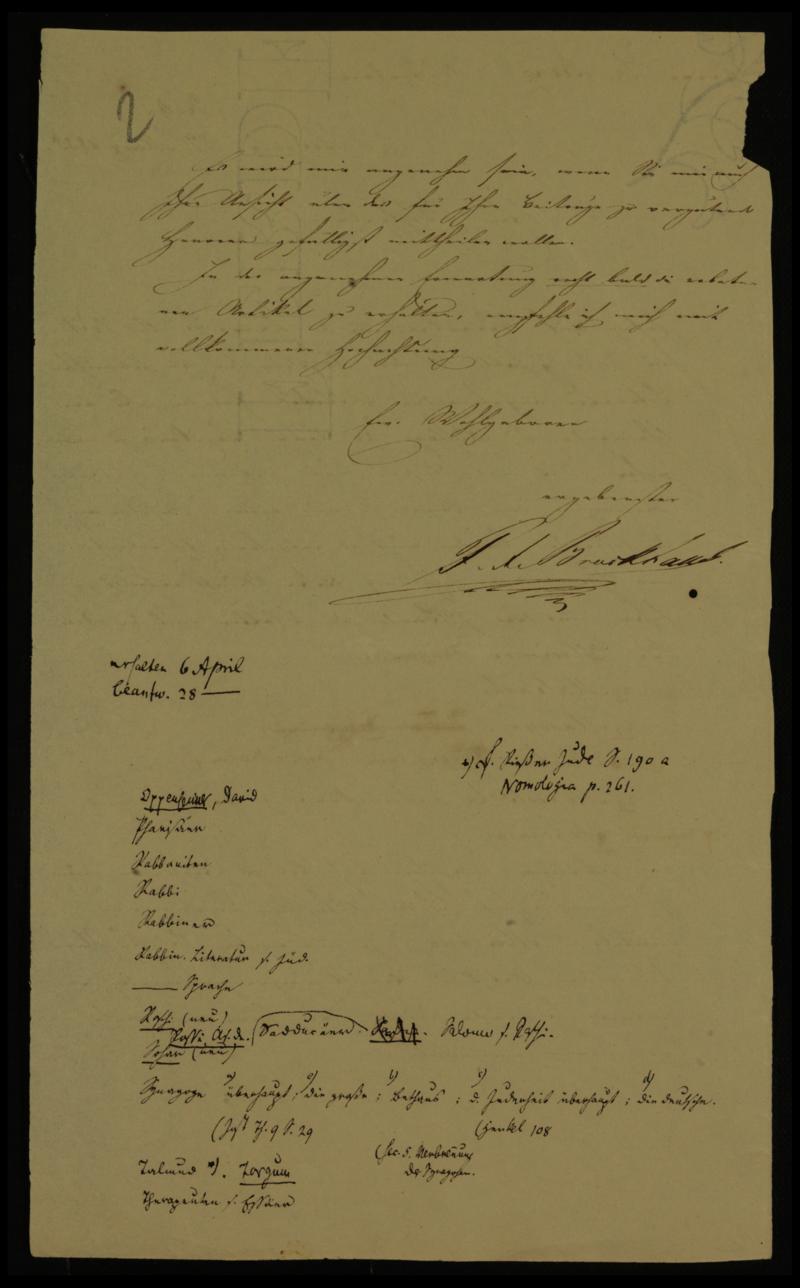 2
Es wird mir angenehm sein, wenn Sie mir auch
Ihre Ansicht über das für Ihre Beiträge zu vergütende
Honorar gefälligst mittheilen wollen.
In der angenehmen Erwartung recht bald die erbete-
nen Artikel zu erhalten, empfehle ich mich mit
vollkommener Hochachtung
Ew. Wohlgeboren
ergebenster
F. A. Brockhaus.
erhalten 6 April
beantw. 28 —
*) cf. Jude S. 190 a
Nomologia p. 261.
Oppenheimer, David
Pharisäer
Rabbaniten
Rabbi
Rabbiner
Rabbin. Literatur s. Jüd.
—— Sprache
Raschi (neu)
Rossi, As. de. Sadducäer. Salomo s. Raschi.
Sohar (neu)
Synagoge a) überhaupt; die große; b) Bethaus; c) d. Judenheit überhaupt; d) die deutsche.
(Jost Th. 9 S. 29
(Henkel 108
der Synagogen.
Talmud *). Targum
Therapeuten s. Essäer